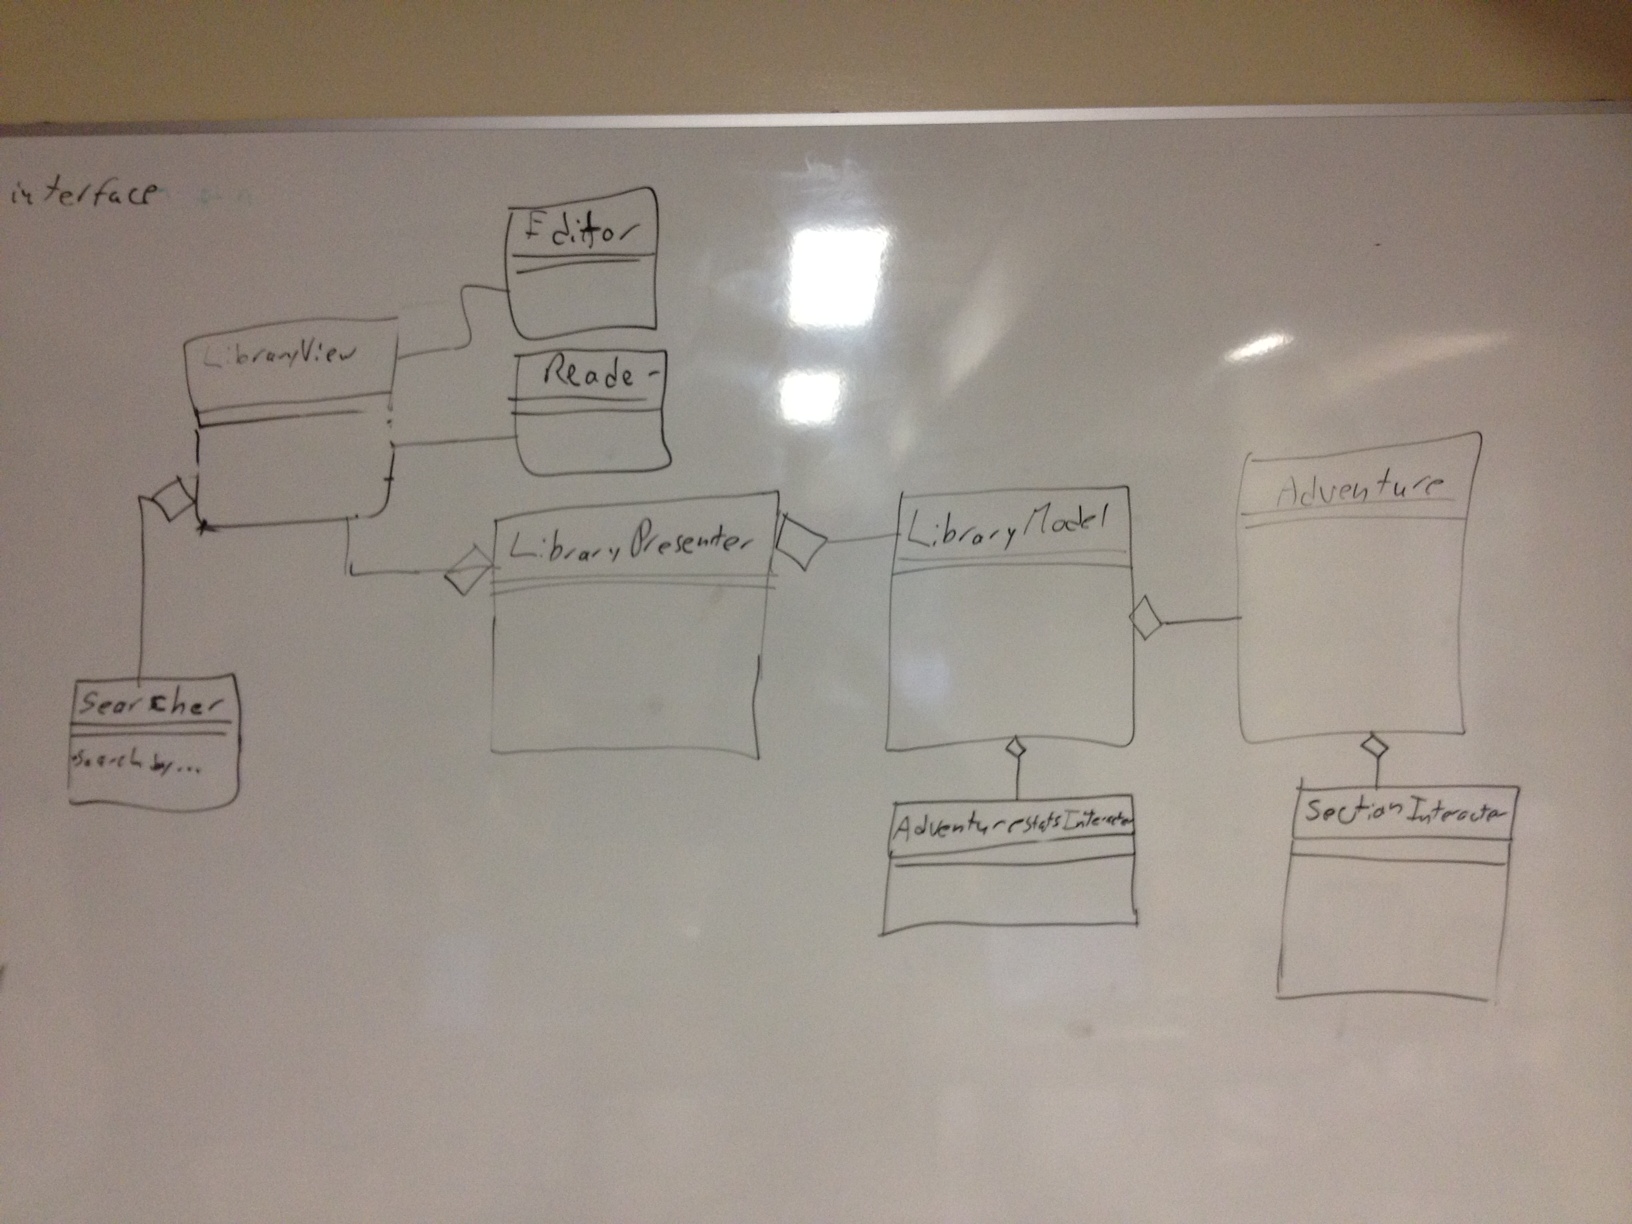 interface
Edittor
LibraryView
Reader
LibraryPresenter
LibraryModel
Adventure
Searcher
search by...
AdventurestatsInteracter
SectionInteracter